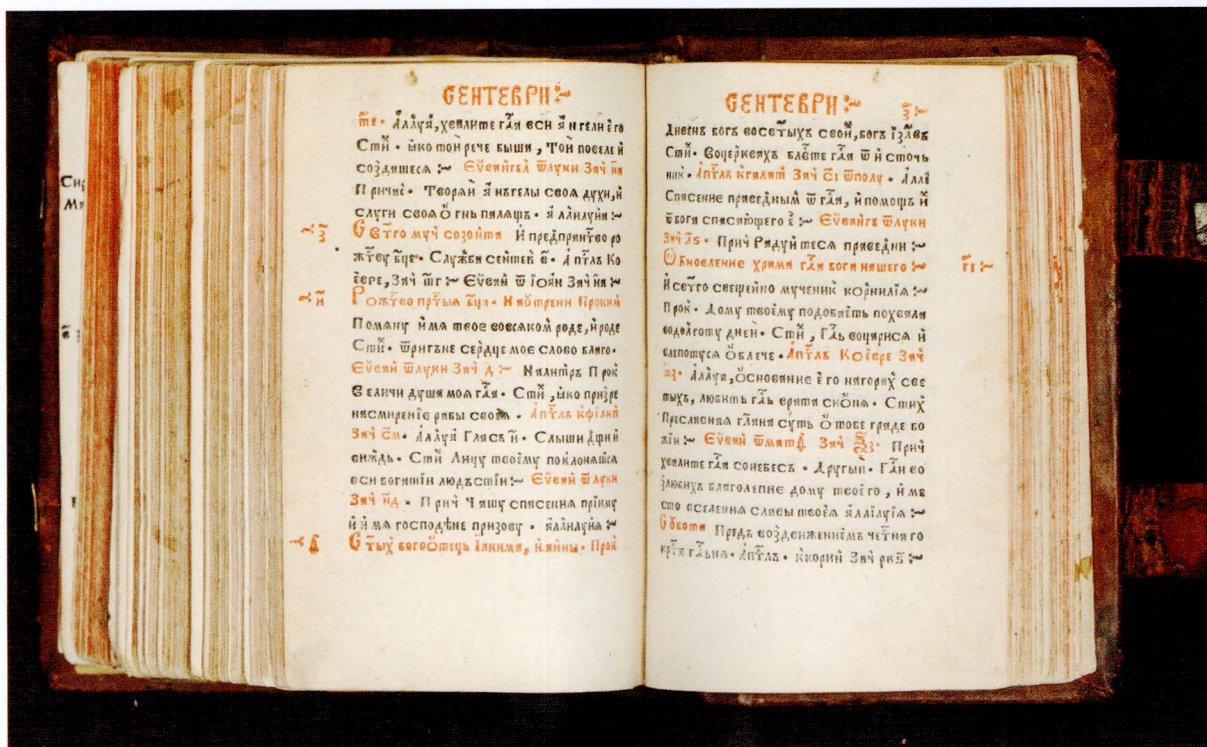 СЕНТЕВРИ :~
те҃. Аллуа҃, хвалите гл҃я вси а҆нгели его
Сти҃. ꙗко той рече быша, Той повеле и҆
создашеся :~ Еѵ҆ванге́л ѿлуки Зач҃ на҃
Прича́с. Творяй а҆нъгелы своя духи, и҆
слуги своя ѻ҆гнь палящъ. а҆ллилуйя :~
з҃
Свт҃го муч҃ созонта И҆ предпран҃тво ро
жт҃ву бц҃е. Служби сентев҃ в҃. Апт҃лъ Ко
е҆вре, Зач҃ тг҃ :~ Еѵ҆ван҃ ѿ і҆оан҃ Зач҃ на҃ :~
и҃
Рожт҃во прт҃ыя бц҃а. На ꙋ҆трени Проким҃
Помяну и҆мя твое вовсяком҃ роде, и҆роде
Сти҃. ѿригъне сердце мое слово благо.
Еѵ҆ван҃ ѿлуки Зач҃ д҃ :~ Налитр҃ъ Прок҃
Величи душа моя гл҃а. Сти҃, ꙗко призре
насмирение рабы своея. Апт҃лъ кфілип҃
Зач҃ см҃. Аллуа҃ Гласъ и҃. Слыши дщи҃ и҆
виждь. Сти҃ Лицу твоему поклонятся
вси богатіи людъстіи :~ Еѵ҆ван҃ ѿлуки
Зач҃ нд҃. Прич҃ Чашу спасения прііму
и҆ и҆мя господъне призову. аллилуйя :~
д҃
Ст҃ых богоѻтецъ Іакима, и҆ анны. Прок҃
СЕНТЕВРИ :~
з҃ :~
Дивенъ богъ восвет҃ыхъ свои҃, богъ і҆зл҃въ
Сти҃. Воцерквахъ блв҃те гл҃я ѿ и҆сточь
ник. Апт҃лъ кгалат҃ Зач҃ сі҃ ѿполу. Алле҃
Спасение праведным҃ ѿ гл҃я, и҆ помощъ и҆
ѿбога спасающего е҃ :~ Еѵ҆ванге҃ ѿлуки
Зач҃ лѕ҃. Прич҃ Радуй теся праведни :~
Обновление храма гл҃я бога нашего :~
гі҃ :~
И҆ свет҃го свещеи҃ко мученик҃ корнилія :~
Прок҃. Дому твоему подобаетъ похвала
водолготу дней. Сти҃, Гл҃ь воцарися и҆
влепотуся ѻ҆блече. Апт҃лъ Ко е҆вре Зач҃
тз҃. Аллуа҃, ѻ҆снование е҆го нагорах҃ све
тыхъ, любитъ гл҃ь врата сиѻня. Стих҃
Преславная гл҃аня суть ѻ҆ тебе граде бо
жіи :~ Еѵ҆ван҃ ѿмат҃ѳ. Зач҃ ѯз҃. Прич҃
хвалите гл҃я сонебесъ. Другый. Гл҃и во
злюбих҃ благолепие дому твоего, и҆ ме
сто вселения славы твоея аллілуія :~
Субота Предъ воздвижениемъ чет҃наго
крт҃а гл҃ьня. Апт҃лъ. ккорин҃ Зач҃ рке҃ :~